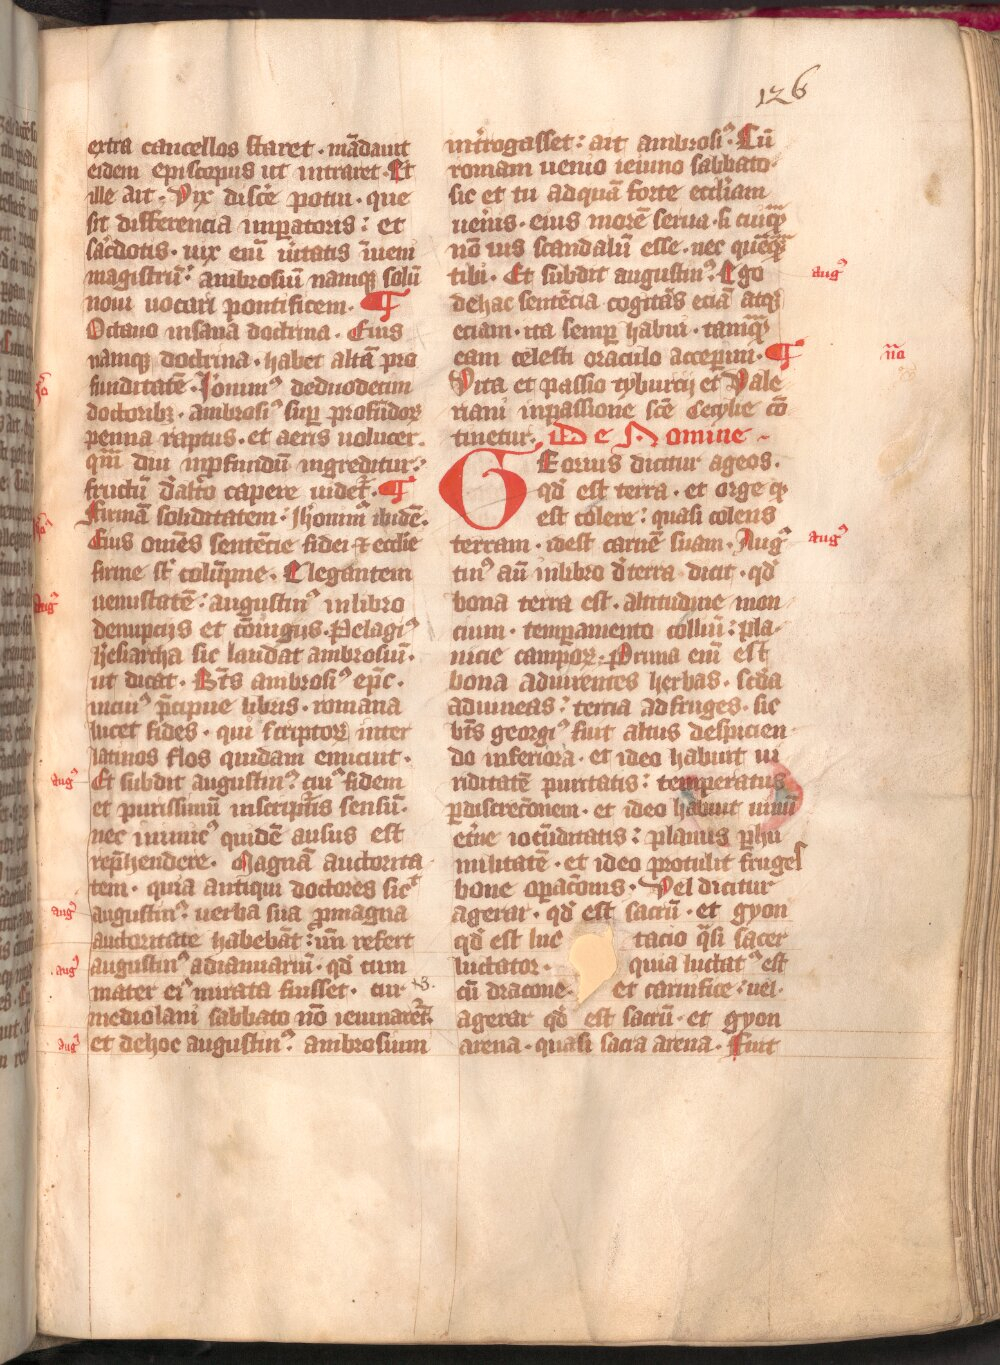 126
extra cancellos staret · mādauit
eidem episcopus ut intraret · Et
ille ait · Vix discē potui · que
sit differencia imꝑatoris : et
sac̄dotis · uix enī ūitatis īueni
magistrū : ambrosiū namqꝫ solū
noui uocari pontificem · ¶
Octauo in sana doctrina · Eius
namqꝫ doctrina · habet altā pro
funditatē · Ieronimꝰ deduodecim
doctoribꝫ · ambrosiꝰ suꝑ profūdoꝝ
penna raptus · et aeris uolucer ·
qm̄ diu inꝓfundū ingreditur :
fructū d̄alto capere uidet᷑ · ¶
Firmā soliditatem : Ihonimꝰ ibidē ·
Eius om̄es sentēcie fidei ⁊ ecclīe
firme st̄ colūpne · Elegantem
uenustatē : augustinꝰ inlibro
denupcijs et cōiugijs · Pelagiꝰ
hesiarcha sic laudat ambrosiū ·
ut dicat · Bt̄s ambrosiꝰ ep̄c ·
incuiꝰ p̄cipue libris · romana
lucet fides · qui scriptoꝝ inter
latinos flos quidam enicuit ·
augꝰ Et subdit augustinꝰ : cuiꝰ fidem
et purissimū inscripturis sensū ·
nec inimicꝰ quidē ausus est
rep̄hendere · Magnā auctorita
tem · quia antiqui doctores sicꝰ
augꝰ augustinꝰ : uerba sua ꝓmagna
auctoritate habebāt : un̄ refert
augꝰ augustinꝰ adianuariū · qd̄ cum
mater eiꝰ mirata fuisset · cur
mediolani sabbato nō ieiunaret᷑
augꝰ et dehoc augustinꝰ · ambrosium
int̄rogasset : ait ambrosiꝰ · Cū
romam uenio ieiuno sabbato ·
sic et tu adquā forte eccliam
ueneris · eius morē serua · si cuiqꝫ
nō uis scandalū esse · nec quēqꝫ
tibi · Et subdit augustinꝰ : Ego augꝰ
dehac sentēcia cogitās eciā atqꝫ
eciam · ita semꝑ habui · tamqꝫ
eam celesti oraculo acceperim · ¶ nō
Vita et passio tyburcij et Vale
riani inpassione scē Cecylie cō
tinetur · De Nomine
GEorius dicitur ageos ·
qd̄ est terra · et orge qꝫ
est colere : quasi colens
terram · idest carnē suam · Aug᷑ augꝰ
tinꝰ aū inlibro d̄terra dicit · qd̄
bona terra est · altitudine mon
cium · temꝑamento colliū : pla
nicie campoꝝ · Prima enī est
bona aduirentes herbas · scd̄a
aduineas : tercia adfruges · sic
bt̄s georgiꝰ fuit altus despicien
do inferiora · et ideo habuit ui
riditatē puritatis : temperatus
ꝑdiscrec̄onem · et ideo habuit uinū
et̄ne iocūditatis : planus ꝑhu
militatē · et ideo protulit fruges
bone oꝑac̄onis · Vel dicitur
agerar · qd̄ est sacrū · et gyon
qd̄ est luc tacio q̄si sacer
luctator · quia luctatꝰ est
cū dracone · et carnifice : uel
agerar qd̄ est sacrū · et gyon
arena · quasi sacra arena · Fuit